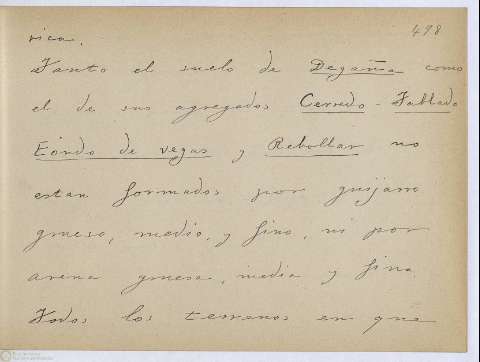 498
rica.
Tanto el suelo de Degaña como
el de sus agregados Cerredo - Tablado
Fondo de vegas y Rebollar no
estan formados por guijarro
grueso, medio, y fino, ni por
arena gruesa, media y fina.
Todos los terrenos en que